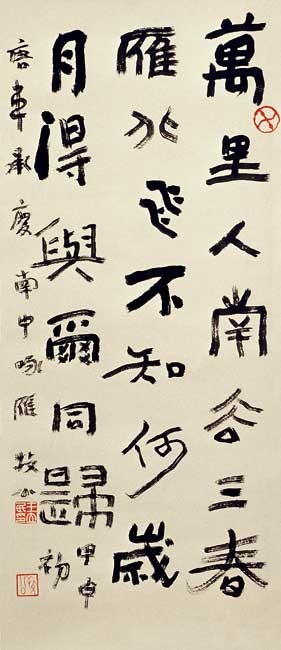 萬里人南去三春
雁北飛不知何歲
月得與爾同歸
甲申初
唐韋承慶南中咏雁